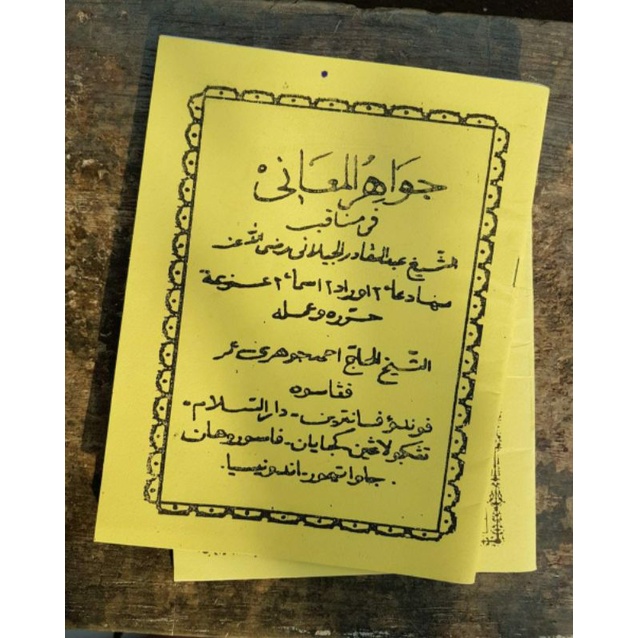 جواهر المعانى
فى مناقب
الشيخ عبد القادر الجيلانى رضى الله عنه
منها دعاء ٢ اوراد ٢ اسماء ٢ عزيمة
حرره وعمله
الشيخ الحاج احمد جوهرى عمر
فاسوه
فوندق فسانترين - دار السلام -
تڠكولاڠين - كبايان - فاسوروهان
جاوا تيمور - اندونيسيا .